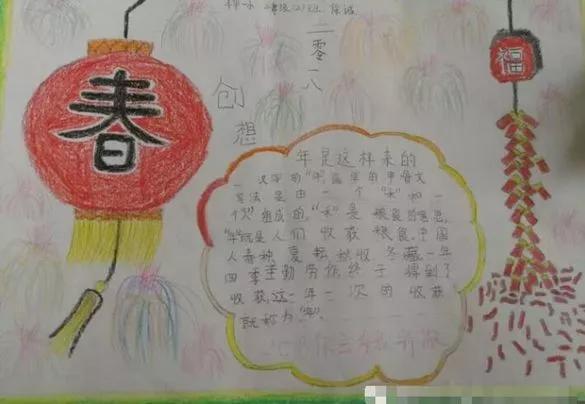 二零一八
福
春
创想
年是这样来的
汉字的"年"最早的甲骨文
写法是由一个"禾"和一
个"人"组成的,"禾"是粮食的意思,
"年"就是人们收获粮食。中国
人春种夏耘秋收冬藏,一年
四季辛勤劳作终于得到了
收获,这一年一次的收获
就称为"年"。